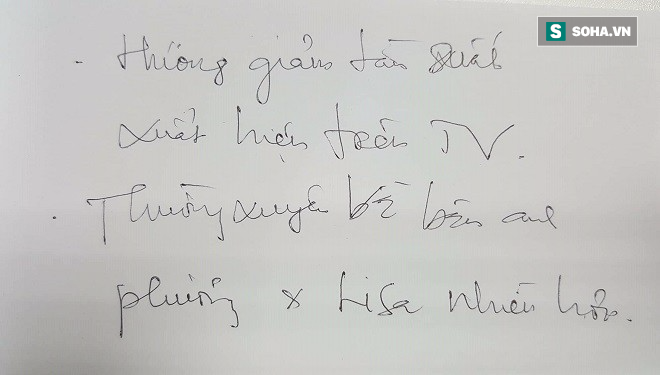 S SOHA.VN
. thương giảm tần suất
xuất hiện trên TV.
. Thường xuyên về bên anh
phường & Lisa nhiều hơn.